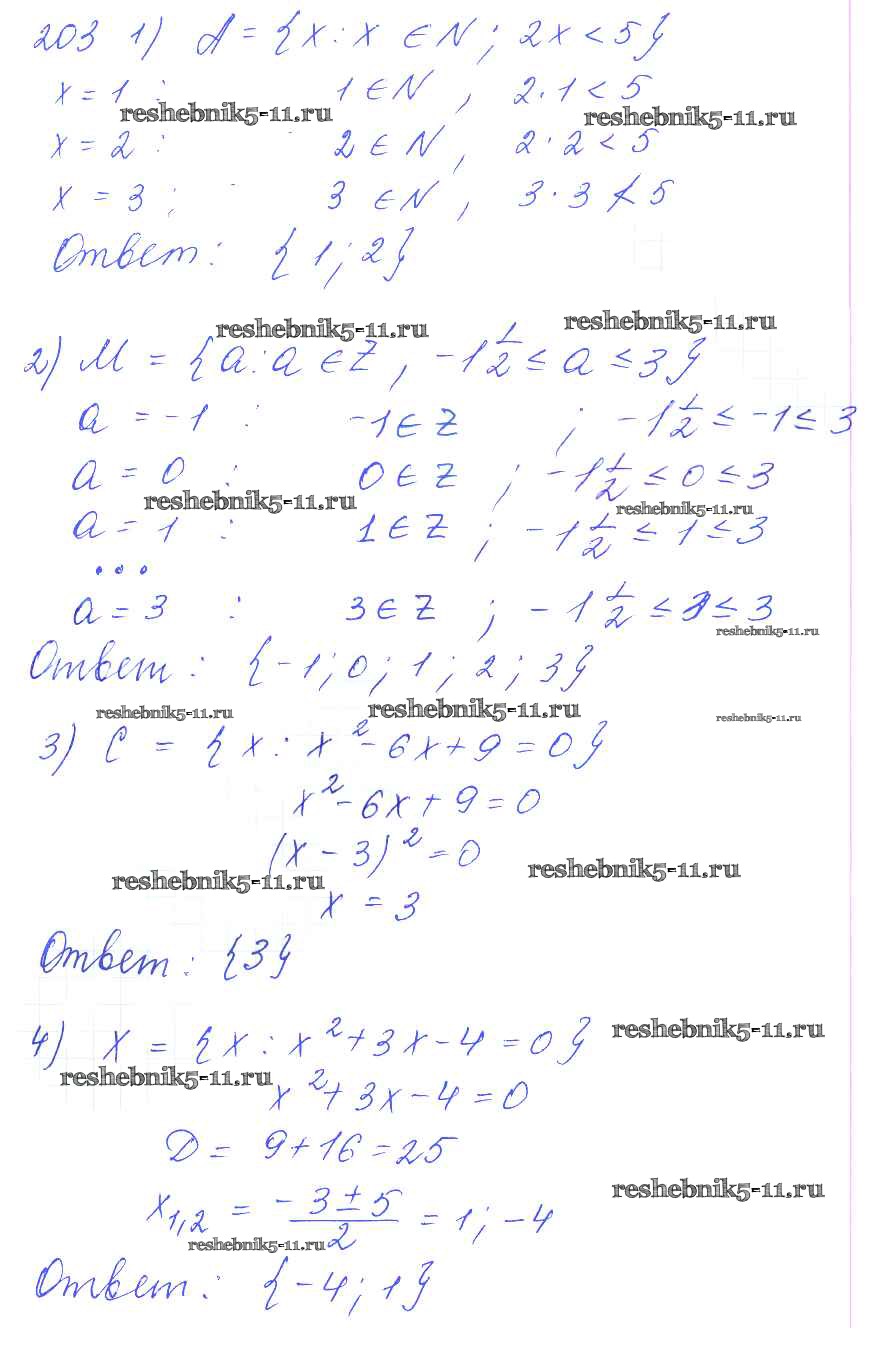 203 1) A = {x : x ∈ N ; 2x < 5}
x = 1 : 1 ∈ N , 2·1 < 5
reshebnik5-11.ru reshebnik5-11.ru
x = 2 : 2 ∈ N , 2·2 < 5
x = 3 ; 3 ∈ N , 3·3 ≮ 5
Ответ : {1 ; 2}
reshebnik5-11.ru reshebnik5-11.ru
2) M = {a : a ∈ Z , -1 1/2 ≤ a ≤ 3}
a = -1 : -1 ∈ Z ; -1 1/2 ≤ -1 ≤ 3
a = 0 : 0 ∈ Z ; -1 1/2 ≤ 0 ≤ 3
reshebnik5-11.ru reshebnik5-11.ru
a = 1 : 1 ∈ Z ; -1 1/2 ≤ 1 ≤ 3
...
a = 3 : 3 ∈ Z ; -1 1/2 ≤ 3 ≤ 3
reshebnik5-11.ru
Ответ : {-1 ; 0 ; 1 ; 2 ; 3}
reshebnik5-11.ru reshebnik5-11.ru reshebnik5-11.ru
3) C = {x : x² - 6x + 9 = 0}
x² - 6x + 9 = 0
(x - 3)² = 0
reshebnik5-11.ru reshebnik5-11.ru
x = 3
Ответ : {3}
4) X = {x : x² + 3x - 4 = 0} reshebnik5-11.ru
reshebnik5-11.ru
x² + 3x - 4 = 0
D = 9 + 16 = 25
reshebnik5-11.ru
x1,2 = (-3 ± 5)/2 = 1 ; -4
reshebnik5-11.ru
Ответ : {-4 ; 1}